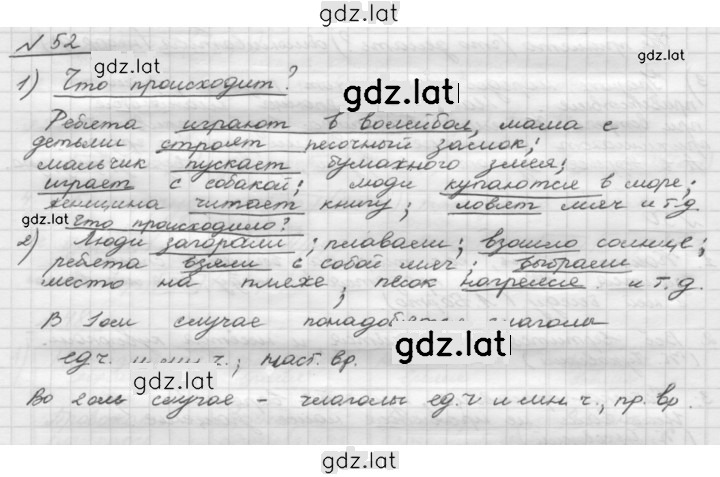 gdz.lat
N 52
gdz.lat
gdz.lat
1) Что происходит?
gdz.lat
Ребята играют в волейбол, мама с
детьми строят песочный замок;
мальчик пускает бумажного змея;
играет с собакой; люди купаются в море;
женщина читает книгу; ловят мяч и т.д
gdz.lat Что происходило?
2) Люди загорали; плавали; взошло солнце;
ребята взяли с собой мяч; выбрали
место на пляже, песок нагрелся и т.д.
В 1ом случае глаголы
gdz.lat
ед ч. и мн. ч.; наст. вр.
gdz.lat
Во 2ом случае - глаголы ед.ч и мн. ч., пр. вр.
gdz.lat